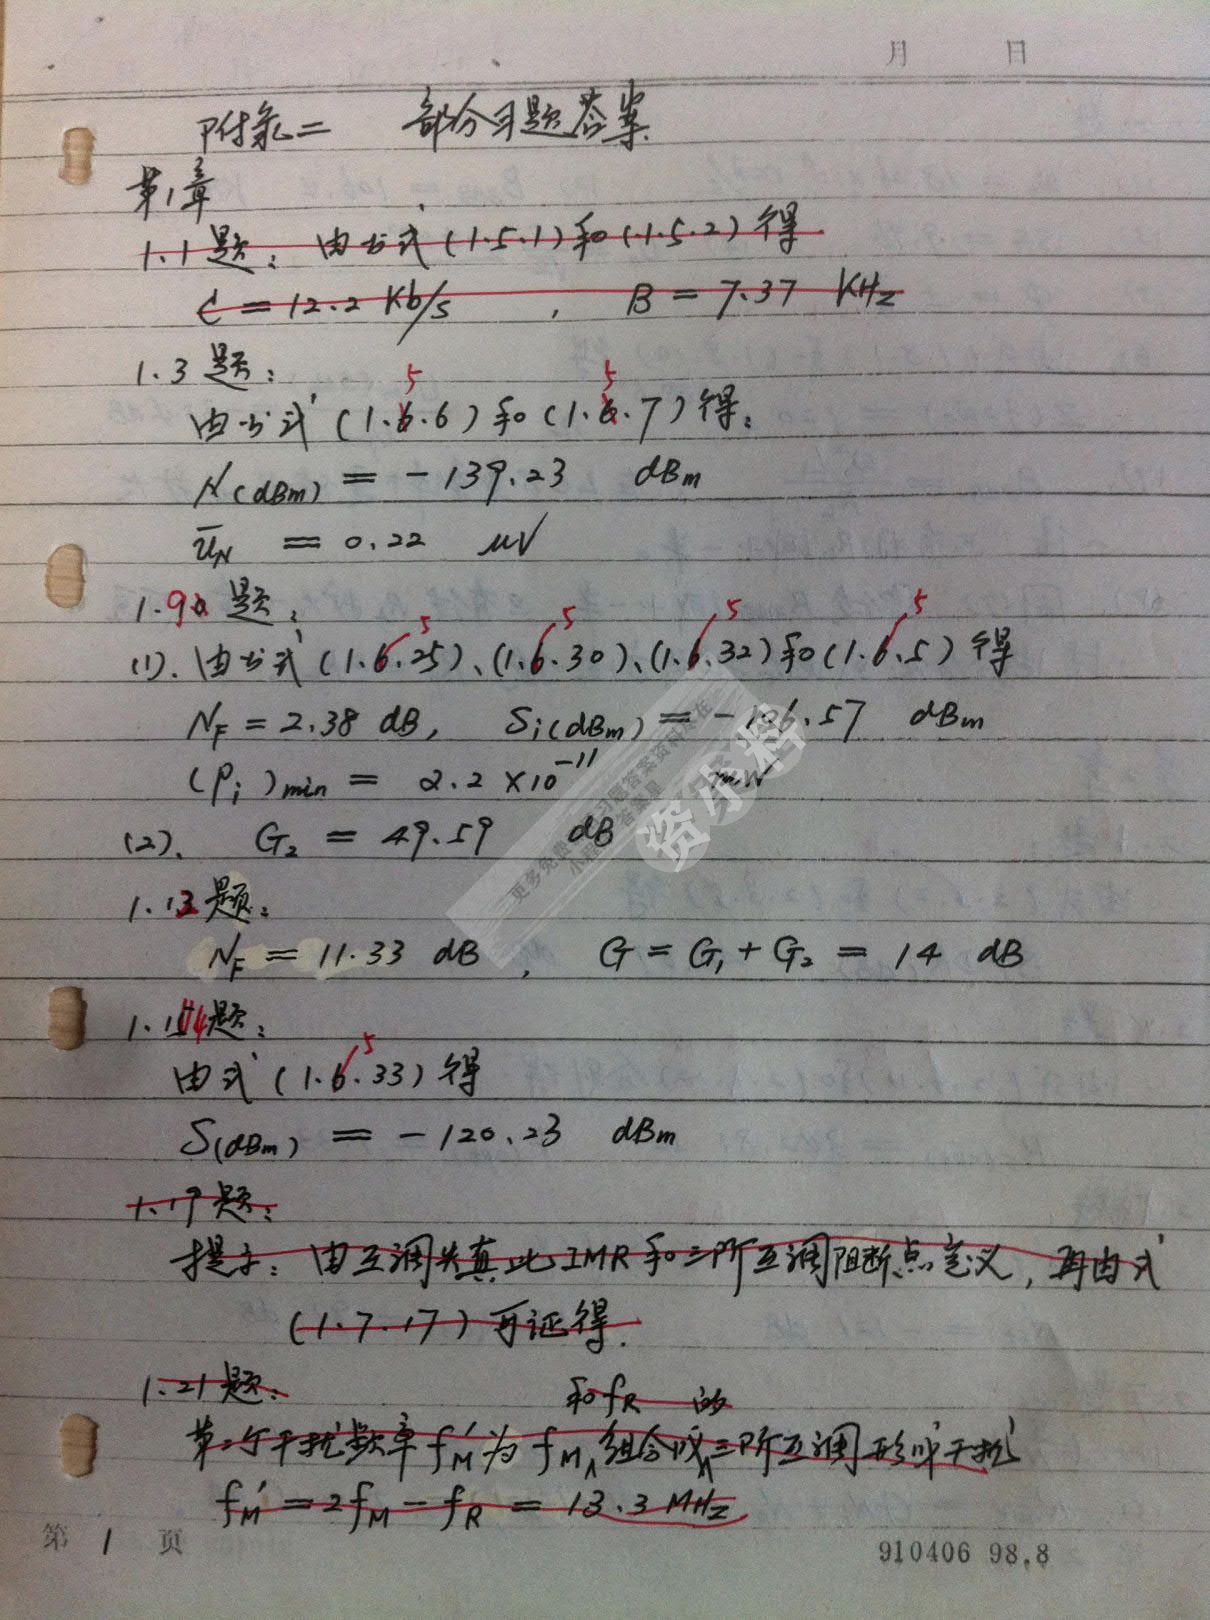 月 日
附录二 部分习题答案
第1章
1.1题：由书式(1.5.1)和(1.5.2)得
C = 12.2 Kb/s , B = 7.37 KHz
1.3题：
由书式(1.5.6)和(1.5.7)得：
N(dBm) = -139.23 dBm
ūN = 0.22 μV
1.9题：
(1). 由书式(1.5.25)、(1.5.30)、(1.5.32)和(1.5.5)得
NF = 2.38 dB, Si(dBm) = -106.57 dBm
(Pi)min = 2.2×10⁻¹¹ mW
(2). G₂ = 49.59 dB
1.13题：
NF = 11.33 dB , G = G₁ + G₂ = 14 dB
1.14题：
由式(1.5.33)得
S(dBm) = -120.23 dBm
1.19题：
提示：由互调失真比IMR和三阶互调阻断点定义，再由式
(1.7.17)可证得.
1.21题：
和fR 的
第二个干扰频率f′M为fM∧组合成∧三阶互调形成干扰
f′M = 2fM - fR = 13.3 MHz
第 1 页
910406 98.8
更多免费 习题答案资料尽在
小程序 答案星
资乐料